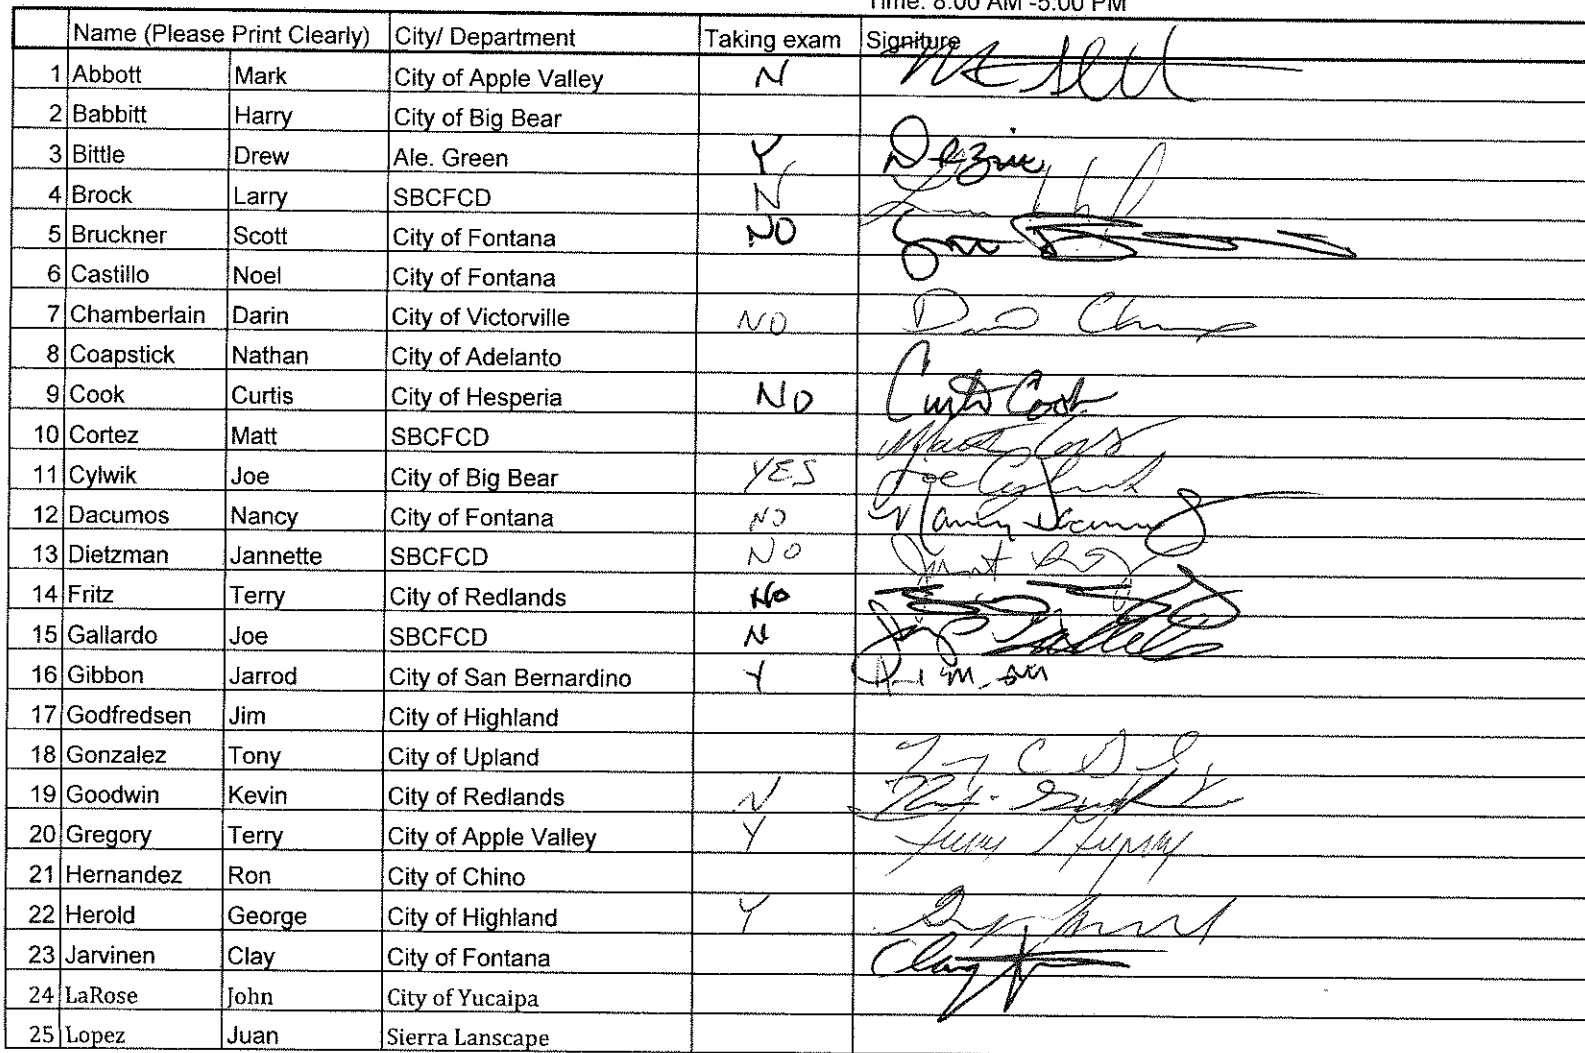 Time: 8:00 AM -5:00 PM
Name (Please Print Clearly) City/ Department Taking exam Signiture
1 Abbott Mark City of Apple Valley N
2 Babbitt Harry City of Big Bear
3 Bittle Drew Ale. Green Y
4 Brock Larry SBCFCD N
5 Bruckner Scott City of Fontana NO
6 Castillo Noel City of Fontana
7 Chamberlain Darin City of Victorville NO
8 Coapstick Nathan City of Adelanto
9 Cook Curtis City of Hesperia NO Curtis Cook
10 Cortez Matt SBCFCD
11 Cylwik Joe City of Big Bear YES Joe Cylwik
12 Dacumos Nancy City of Fontana NO Nancy
13 Dietzman Jannette SBCFCD NO
14 Fritz Terry City of Redlands No
15 Gallardo Joe SBCFCD N
16 Gibbon Jarrod City of San Bernardino Y
17 Godfredsen Jim City of Highland
18 Gonzalez Tony City of Upland
19 Goodwin Kevin City of Redlands N
20 Gregory Terry City of Apple Valley Y Terry Gregory
21 Hernandez Ron City of Chino
22 Herold George City of Highland Y
23 Jarvinen Clay City of Fontana Clay
24 LaRose John City of Yucaipa
25 Lopez Juan Sierra Lanscape